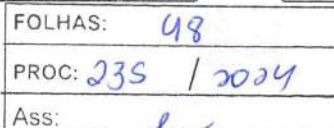 FOLHAS: 48
PROC: 235 / 2024
Ass: